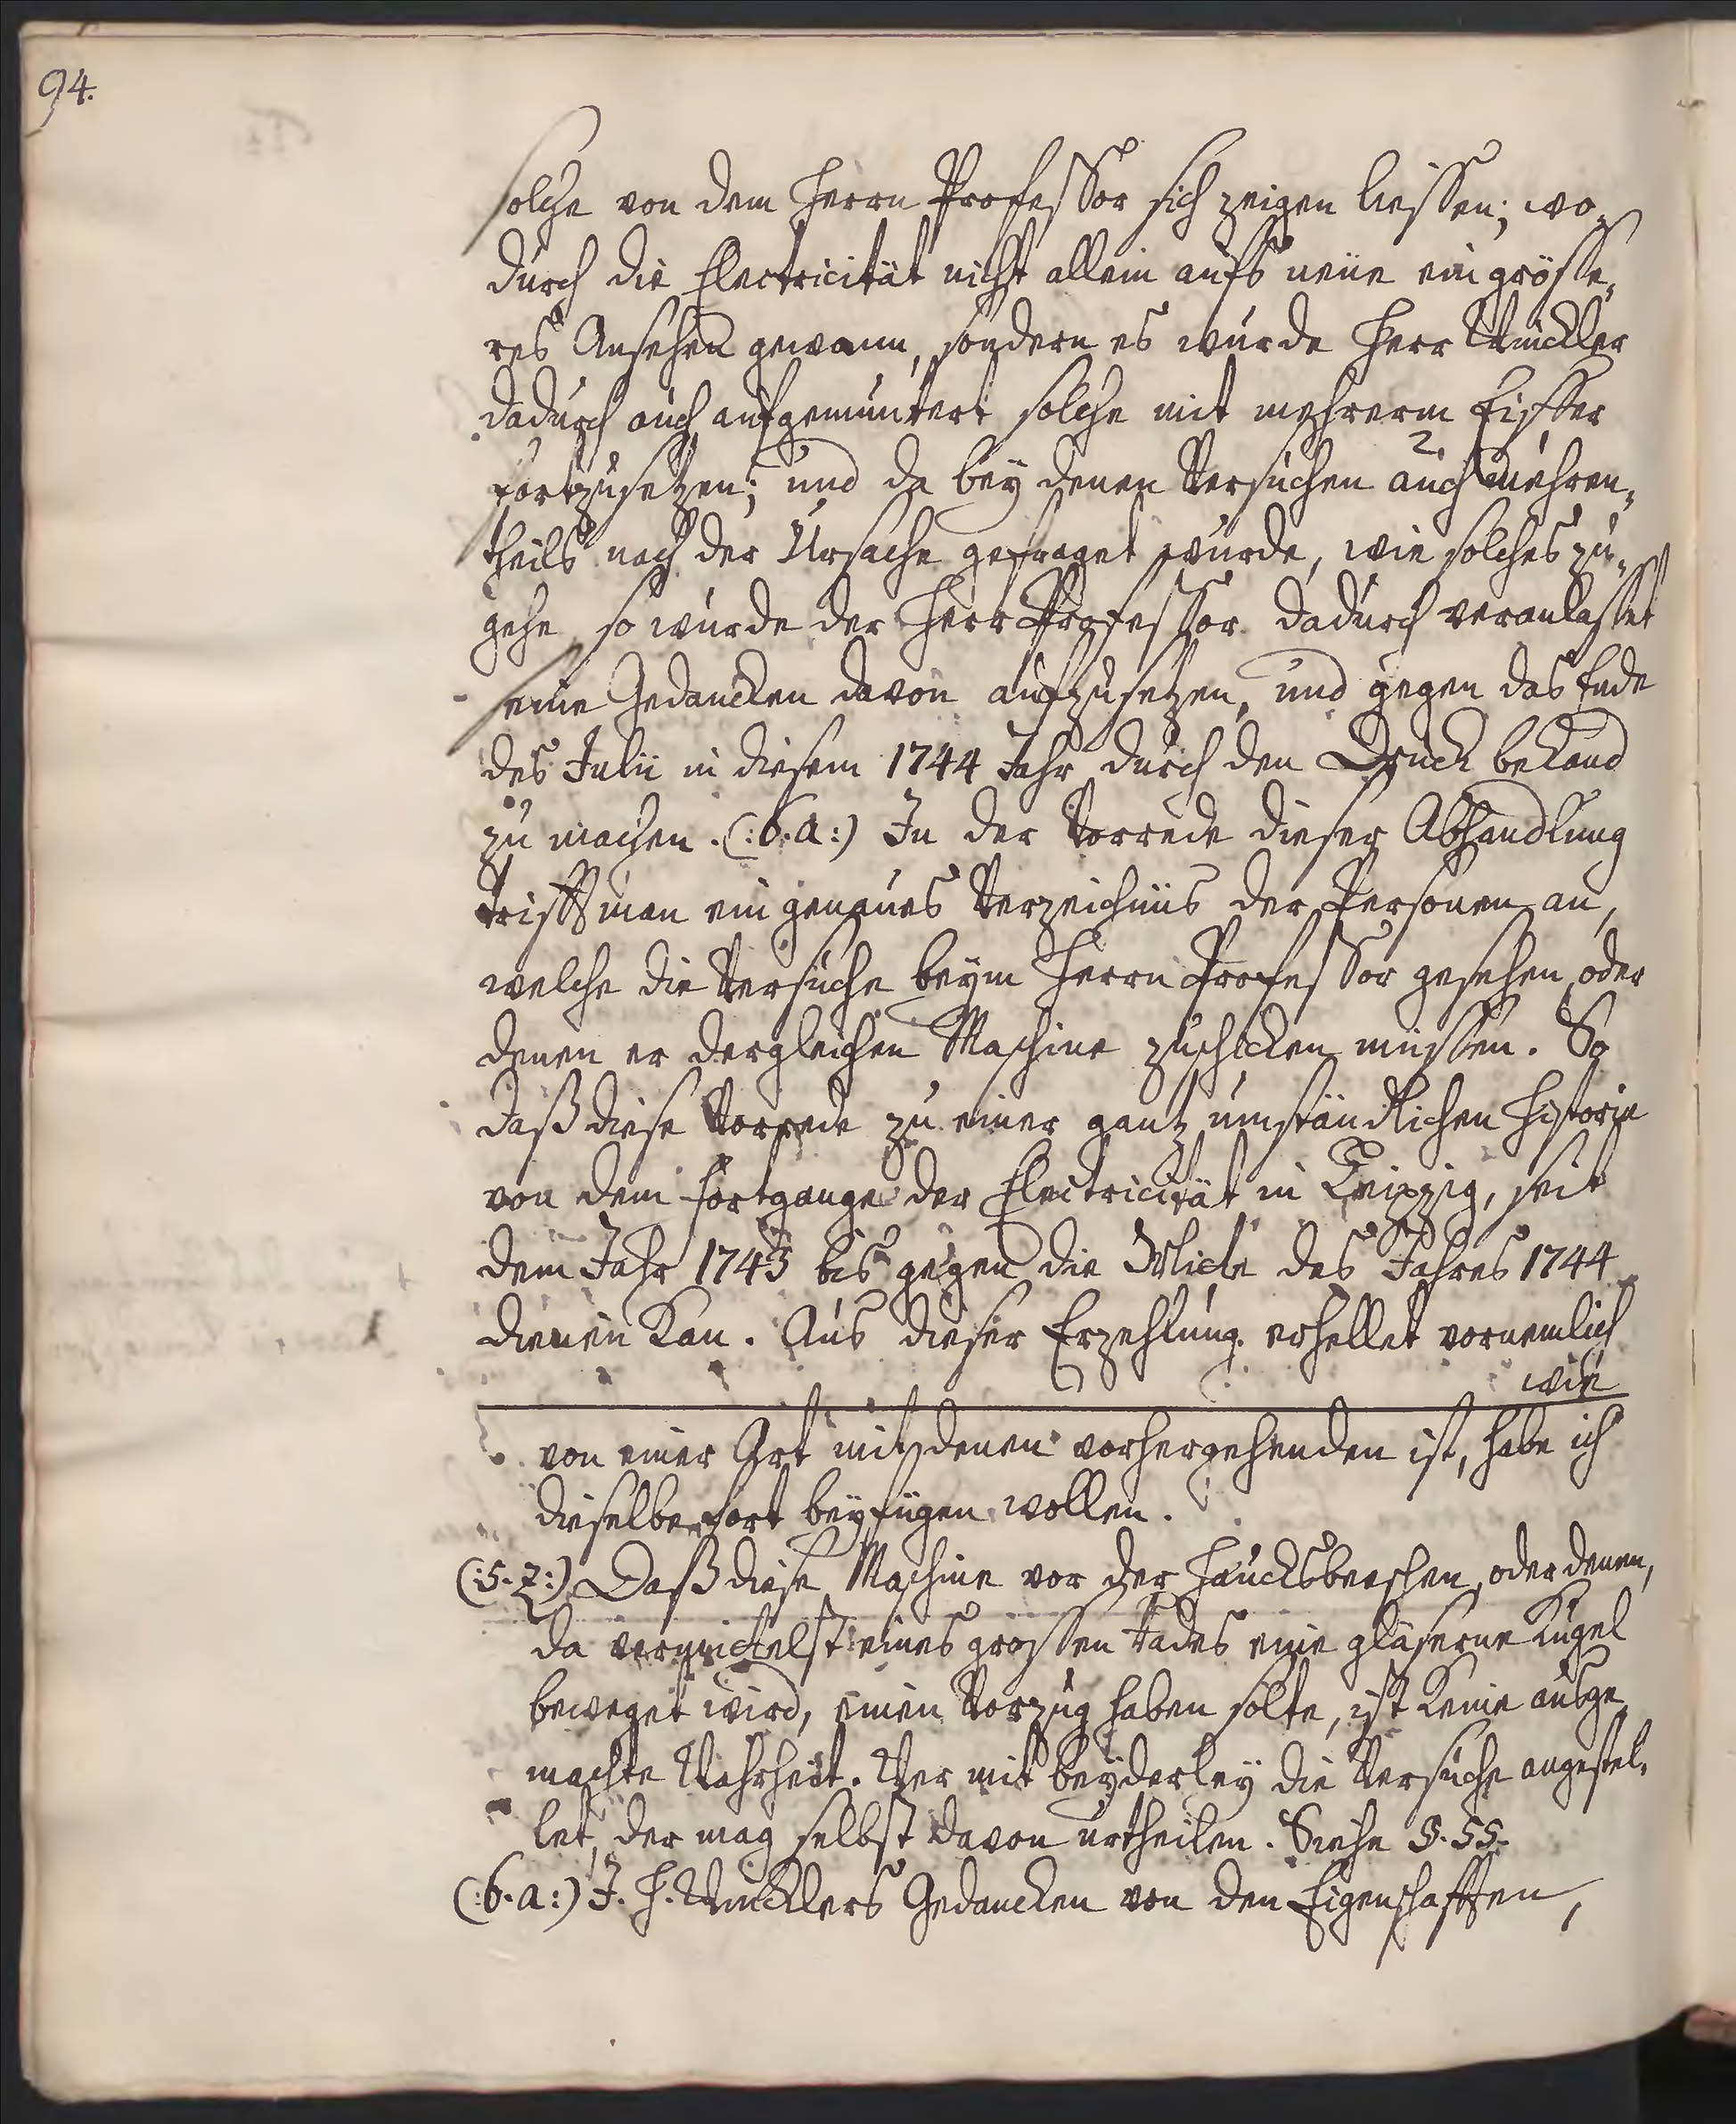 94.
solche von dem Herrn Professor sich zeigen liessen; wo-
durch die Electricität nicht allein aufs neüe ein grösse-
res Ansehen gewann, sondern es wurde Herr Winckler
dadurch auch aufgemuntert solche mit mehrerm Eiffer
fortzusetzen; und da bey denen Versuchen auch mehren-
theils nach der Ursache gefraget wurde, wie solches zu-
gehe, so wurde der Herr Professor dadurch veranlasset
seine Gedancken davon aufzusetzen, und gegen das Ende
des Julii in diesem 1744 Jahr durch den Druck bekand
zu machen. (:6.a:) In der Vorrede dieser Abhandlung
trifft man ein genaues Verzeichnis der Personen an,
welche die Versuche beym Herrn Professor gesehen, oder
denen er dergleichen Maschine zuschicken müssen. So
daß diese Vorrede zu einer gantz umständlichen Historie
von dem Fortgange der Electricität in Leipzig, seit
dem Jahr 1743 bis gegen die Mitte des Jahres 1744
dienen kan. Aus dieser Erzehlung erhellet vornemlich
wie
von einer Art mit denen vorhergehenden ist, habe ich
dieselbe fort beyfügen wollen.
(:5.z:) Daß diese Maschine vor der Haucksbeeschen, oder denen,
da vermittelst eines grossen Rades eine gläserne Kugel
beweget wird, einen Vorzug haben solte, ist keine ausge-
machte Wahrheit. Wer mit beyderley die Versuche angestel-
let, der mag selbst davon urtheilen. Siehe §. 55.
(:6.a:) J. H. Wincklers Gedancken von den Eigenschafften,